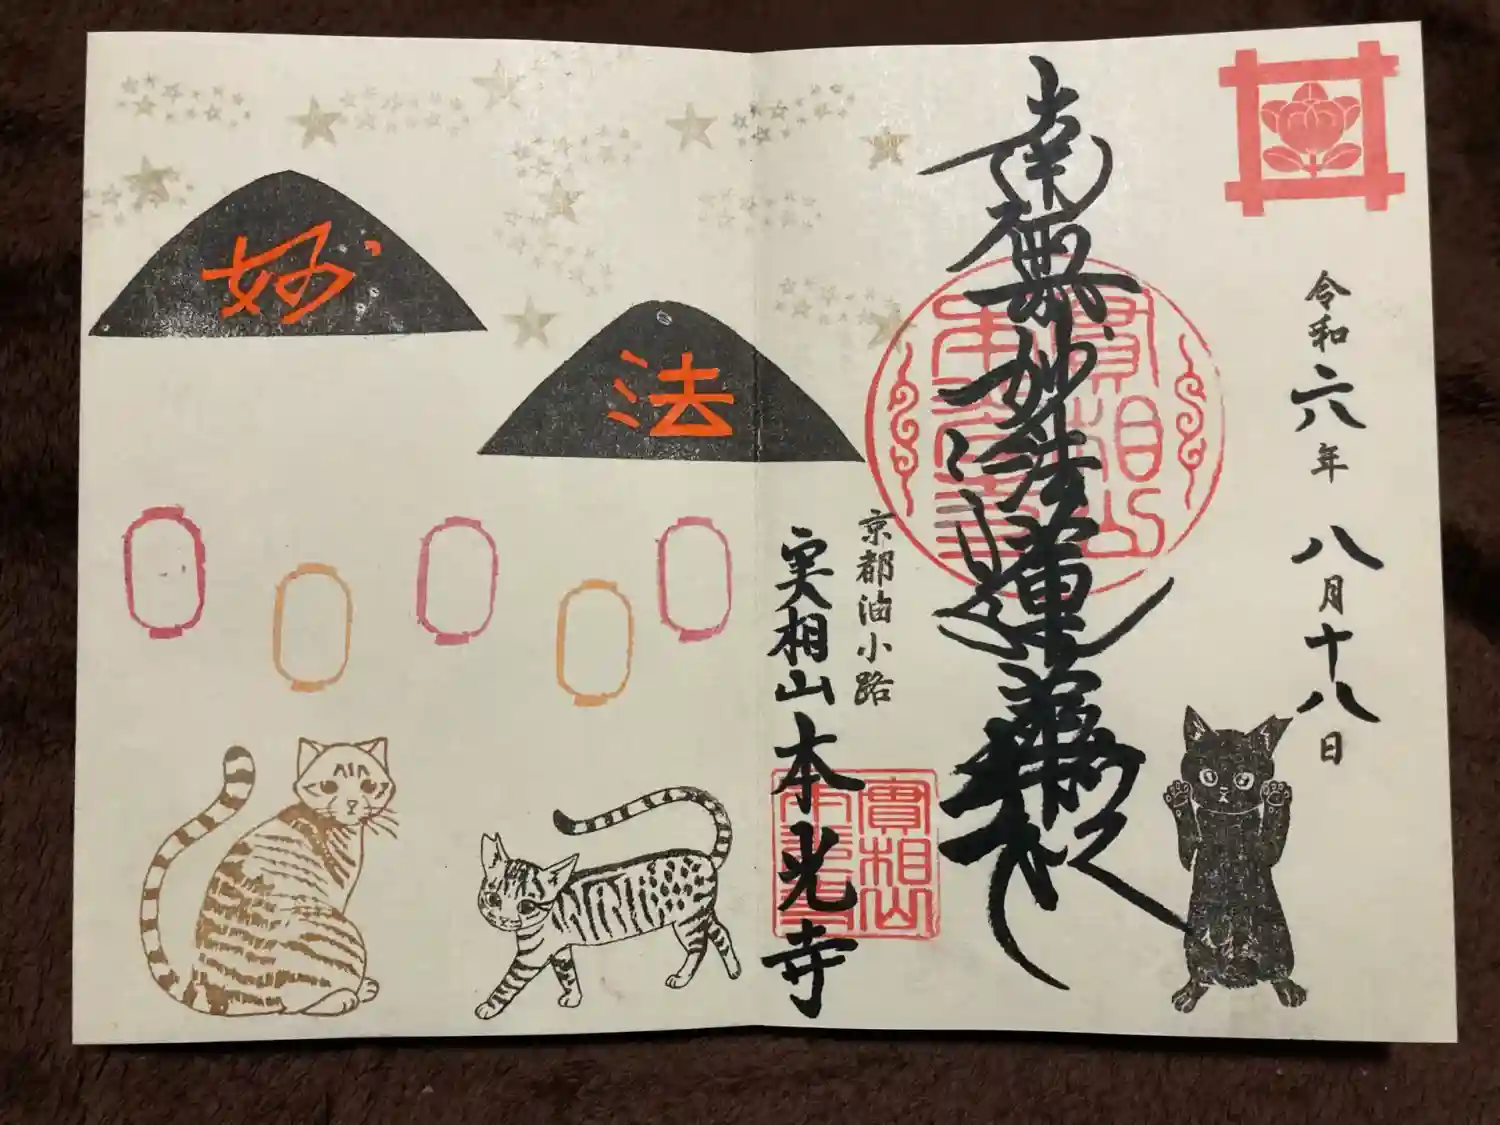 令和六年 八月十八日
南無妙法蓮華経
實相山
本光寺
京都油小路
実相山 本光寺
實相山
本光寺
妙
法